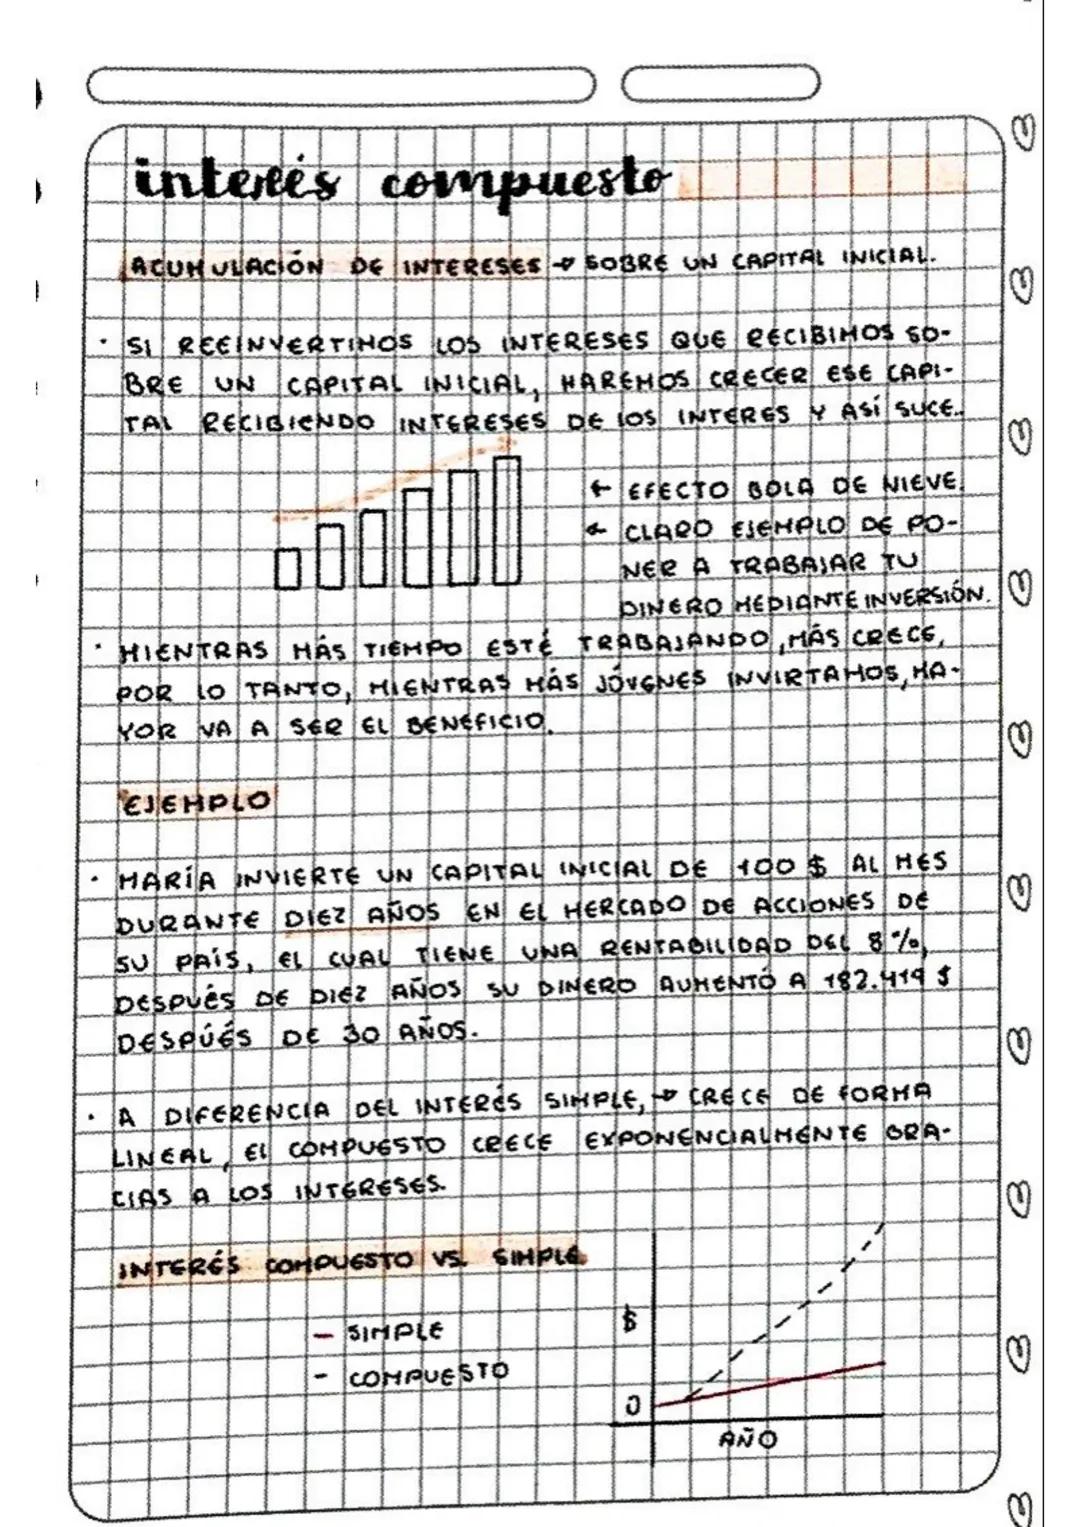 interés compuesto
ACUMULACIÓN DE INTERESES → SOBRE UN CAPITAL INICIAL.
· SI REEINVERTIMOS LOS INTERESES QUE RECIBIMOS SO-
BRE UN CAPITAL INICIAL, HAREMOS CRECER ESE CAPI-
TAL RECIBIENDO INTERESES DE LOS INTERES Y ASÍ SUCE..
← EFECTO BOLA DE NIEVE.
← CLARO EJEMPLO DE PO-
NER A TRABAJAR TU
DINERO MEDIANTE INVERSIÓN.
· MIENTRAS MÁS TIEMPO ESTÉ TRABAJANDO, MÁS CRECE,
POR LO TANTO, MIENTRAS MÁS JÓVENES INVIRTAMOS, MA-
YOR VA A SER EL BENEFICIO.
EJEMPLO
· MARÍA INVIERTE UN CAPITAL INICIAL DE 100 $ AL MES
DURANTE DIEZ AÑOS EN EL MERCADO DE ACCIONES DE
SU PAÍS, EL CUAL TIENE UNA RENTABILIDAD DEL 8%,
DESPUÉS DE DIEZ AÑOS SU DINERO AUMENTÓ A 182.419 $
DESPÚÉS DE 30 AÑOS.
· A DIFERENCIA DEL INTERÉS SIMPLE, → CRECE DE FORMA
LINEAL, EL COMPUESTO CRECE EXPONENCIALMENTE GRA-
CIAS A LOS INTERESES.
INTERÉS COMPUESTO VS. SIMPLE
— SIMPLE
- COMPUESTO
$
0
AÑO